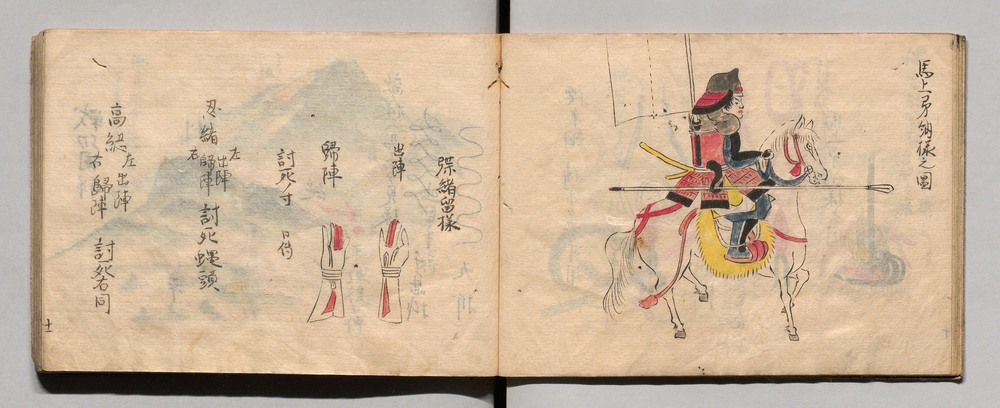 馬上弓納様之図
緤緒留様
出陣
歸陣
討死ノ寸 日侍
忍緒 左 出陣
右 歸陣 討死蠅頭
高紐 左 出陣
右 歸陣 討死右同
十一